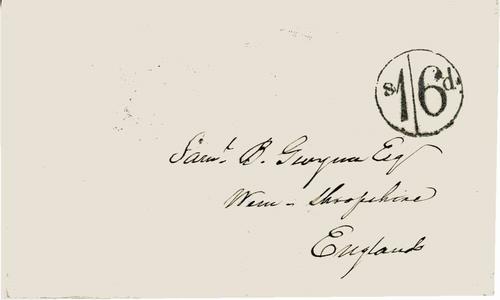 s 1/6 d.
Saml. B. Gwynne Esq
Wem - Shropshire
England